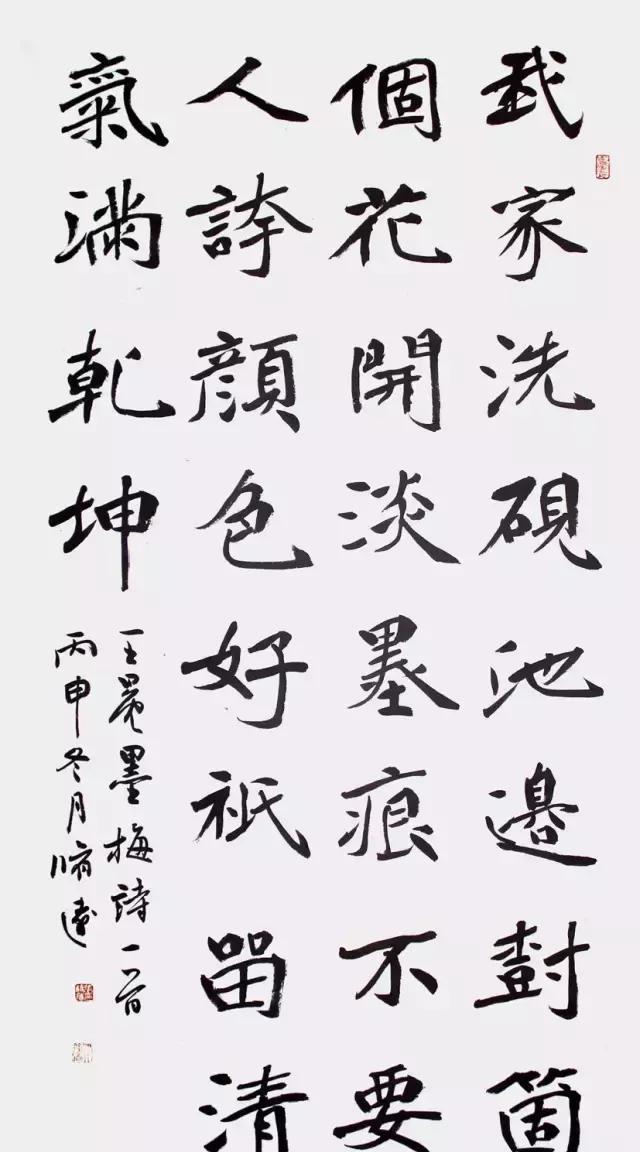 我家洗硯池邊樹箇
個花開淡墨痕不要
人誇顏色好祇留清
氣滿乾坤
王冕墨梅詩一首
丙申冬月